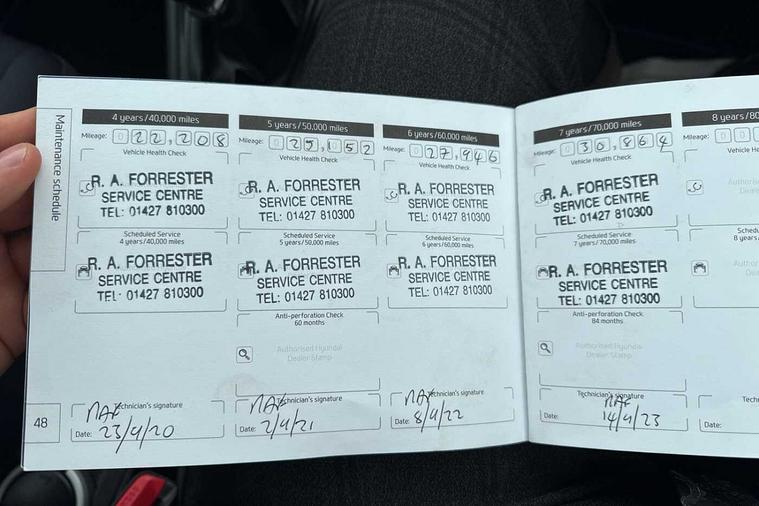 Maintenance schedule
48
4 years/40,000 miles
Mileage: 0 2 2, 2 0 8
Vehicle Health Check
R. A. FORRESTER
SERVICE CENTRE
TEL: 01427 810300
Scheduled Service
4 years/40,000 miles
R. A. FORRESTER
SERVICE CENTRE
TEL: 01427 810300
Technician's signature
Date: 23/4/20
5 years/50,000 miles
Mileage: 0 2 5, 1 5 2
Vehicle Health Check
R. A. FORRESTER
SERVICE CENTRE
TEL: 01427 810300
Scheduled Service
5 years/50,000 miles
R. A. FORRESTER
SERVICE CENTRE
TEL: 01427 810300
Anti-perforation Check
60 months
Authorised Hyundai
Dealer Stamp
Technician's signature
Date: 2/4/21
6 years/60,000 miles
Mileage: 0 2 7, 9 4 6
Vehicle Health Check
R. A. FORRESTER
SERVICE CENTRE
TEL: 01427 810300
Scheduled Service
6 years/60,000 miles
R. A. FORRESTER
SERVICE CENTRE
TEL: 01427 810300
Technician's signature
Date: 8/4/22
7 years/70,000 miles
Mileage: 0 3 0, 8 6 4
Vehicle Health Check
R. A. FORRESTER
SERVICE CENTRE
TEL: 01427 810300
Scheduled Service
7 years/70,000 miles
R. A. FORRESTER
SERVICE CENTRE
TEL: 01427 810300
Anti-perforation Check
84 months
Authorised Hyundai
Dealer Stamp
Technician's signature
Date: 14/4/23
8 years/80
Mileage: 0
Vehicle He
Authoris
Deale
Schedu
8 years/
Author
Deal
Techn
Date: